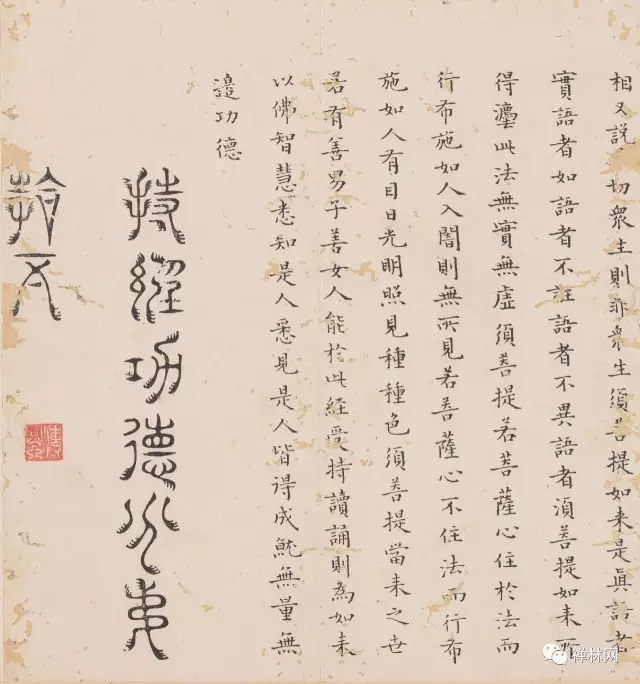 相又說切衆生則非衆生須菩提如来是真語者
實語者如語者不誑語者不異語者須菩提如来所
得灋此法無實無虛須菩提若菩薩心住於法而
行布施如人入闇則無所見若菩薩心不住法而行布
施如人有目日光明照見種種色須菩提當来之世
若有善男子善女人能於此經受持讀誦則為如来
以佛智慧悉知是人悉見是人皆得成就無量無
邊功德
持經功德分第
拾五
禅林网